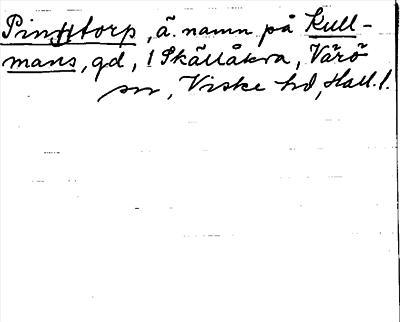 Pinstorp, ä. namn på Kull-
mans, gd, i Skällåkra, Värö
sn, Viske hd, Hall. l.